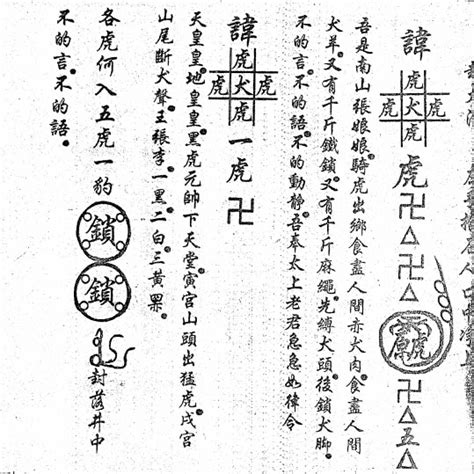 諱 虎 虎犬虎 虎卍△卍△ 虎 卍△五△
吾是南山張娘娘騎虎出鄉食盡人間赤犬肉。食盡人間
犬羊。又有千斤鐵鎖。又有千斤麻繩。先縛犬頭後鎖犬脚。
不的言。不的語。不的動靜。吾奉太上老君急急如律令
諱 虎 虎犬虎 一虎 卍
天皇皇。地皇皇。黑虎元帥下天堂。寅宮山頭出猛虎。戌宮
山尾斷犬聲。王張李。一黑二白三黃
各虎何入五虎一豹 鎖 鎖 封落井中
不的言。不的語。